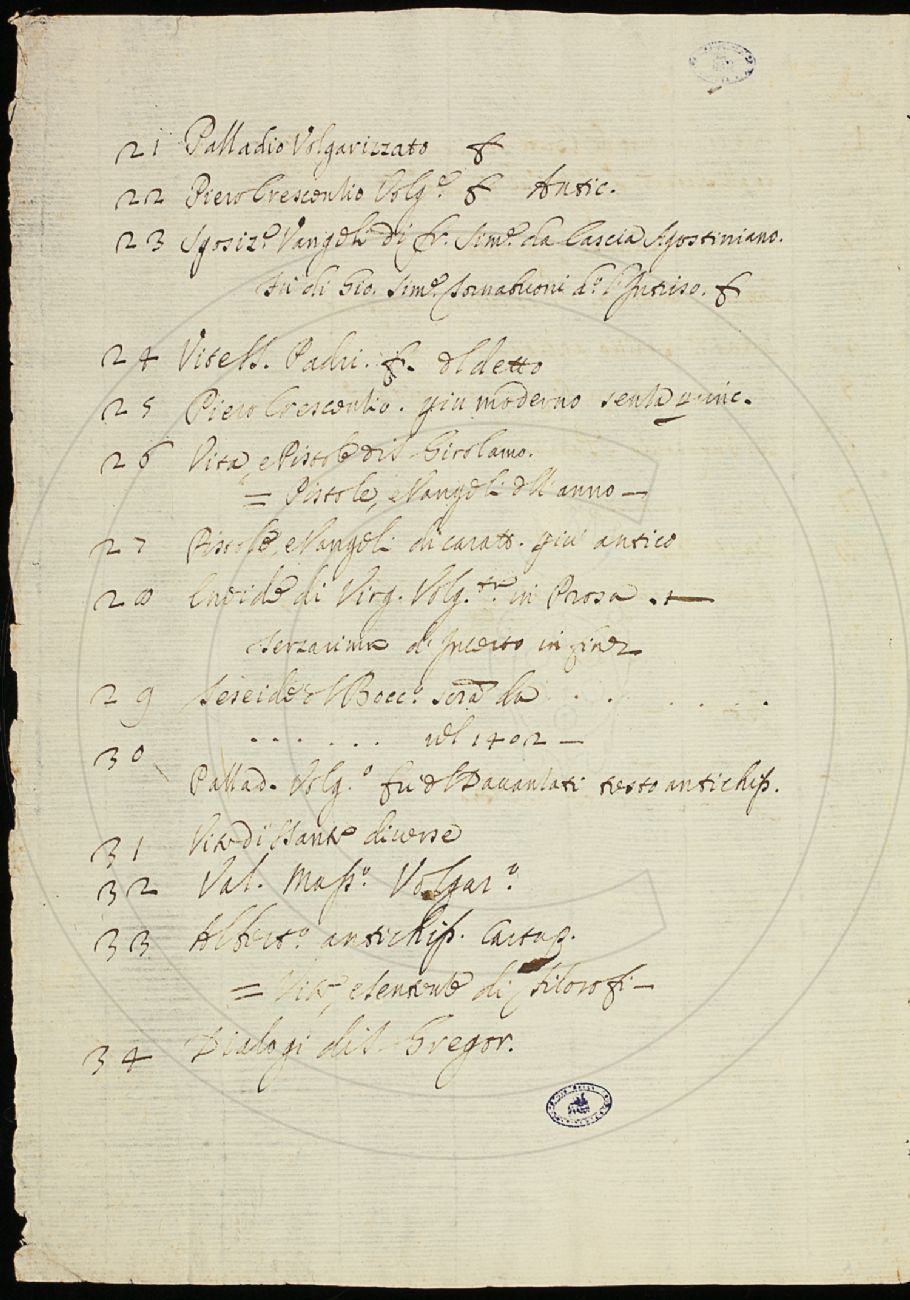 21 Palladio Volgarizzato f
22 Piero Crescentio Volg.e f Antic.
23 Sposiz.e Vangeli di fr. Sim.e da Cascia Agostiniano.
fu di Gio. Sim.e Tornabuoni d.o l'Intriso. f
24 Vite SS. Padri. f. del detto
25 Piero Crescentio. più moderno senza princ.
26 Vita, e Pistole di S. Girolamo.
= Pistole, e Vangeli dell'anno —
27 Pistole, e Vangeli di caratt. più antico
28 Eneide di Virg. Volg. in Prosa. +
Terzarima d'Incerto in fine
29 Teseide del Bocc.o scr.a da . . . . . .
. . . . . . nel 1402 —
30 Pallad. Volg.o fu del Davanzati testo antichiss.
31 Vite di Sante diverse
32 Val. Mass.o Volgar.o
33 Albert.o antichiss. Cartap.
= Vite, e sentenze di Filosofi —
34 Dialogi di S. Gregor.